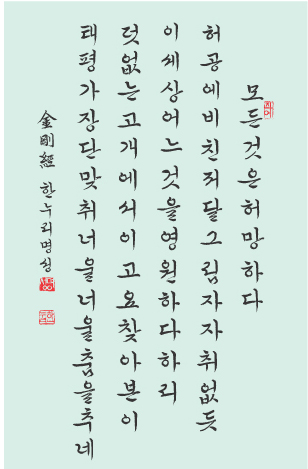 모든것은허망하다
허공에비친저달그림자자취없듯
이세상어느것을영원하다하리
덧없는고개에서이고요찾아본이
태평가장단맞취너울너울춤을추네
金剛經 한누리명성